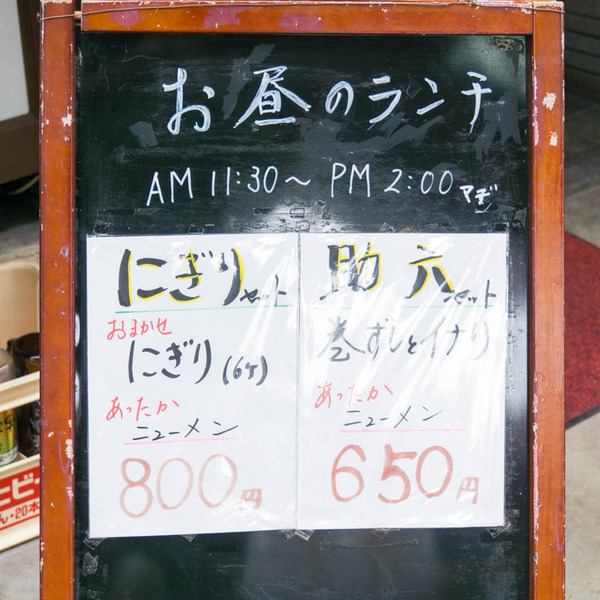 お昼のランチ
AM 11:30〜 PM 2:00 マデ
にぎりセット
おまかせ
にぎり(6ケ)
あったか
ニューメン
800円
助六セット
巻ずしとイナリ
あったか
ニューメン
650円
ビー
ん・20本